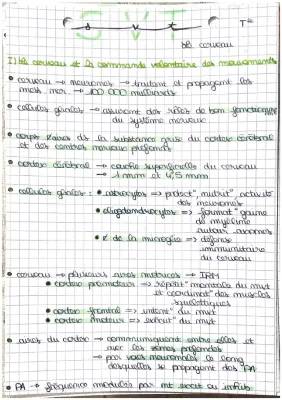 S V T
T<sup>le</sup>
Le cerveau
I) Le cerveau et la commande volontaire des mouvements
• cerveau → neurones → traitent et propagent les
mess nerv → 100 000 milliards
• cellules gliales → assurent des rôles de bon fonctionnem
du système nerveux
• corps ds la substance grise du cortex cérébral
et des centres nerveux profonds
• cortex cérébral → couche superficielle du cerveau
→ 1 mm et 4,5 mm
• cellules gliales : • astrocytes => protect°, nutrit°, activité
des neurones
• oligodendrocytes => format° gaine
de myéline
autour axones
• de la microglie => défense
immunitaire
du cerveau
• cerveau → plusieurs aires motrices → IRM
• cortex prémoteur => répétit° mentale du mvt
et coordinat° des muscles
squelettiques
• cortex frontal => intent° du mvt
• cortex moteur => exécut° du mvt
• aires du cortex → communiquent entre elles et
avec les zones profondes
→ par voies neuronales le long
desquelles se propagent des PA
• PA → fréquence modulée par mt excit ou inhib